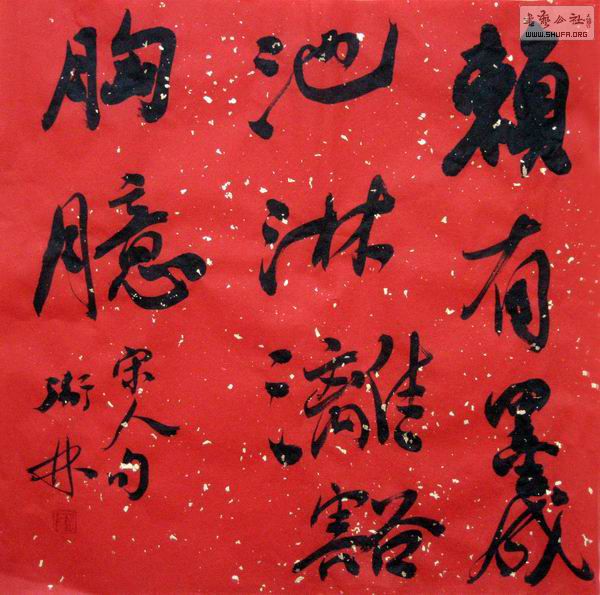 賴有墨成
池淋漓豁
胸臆
宋人句
書藝公社
WWW.SHUFA.ORG